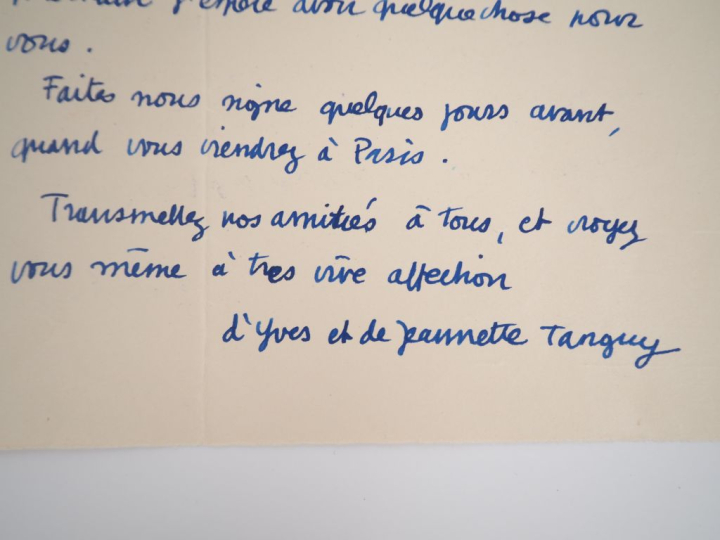 j'espère avoir quelquechose pour
vous.
Faites nous signe quelques jours avant,
quand vous viendrez à Paris.
Transmettez nos amitiés à tous, et croyez
vous même à très vive affection
d'Yves et de Jeannette Tanguy